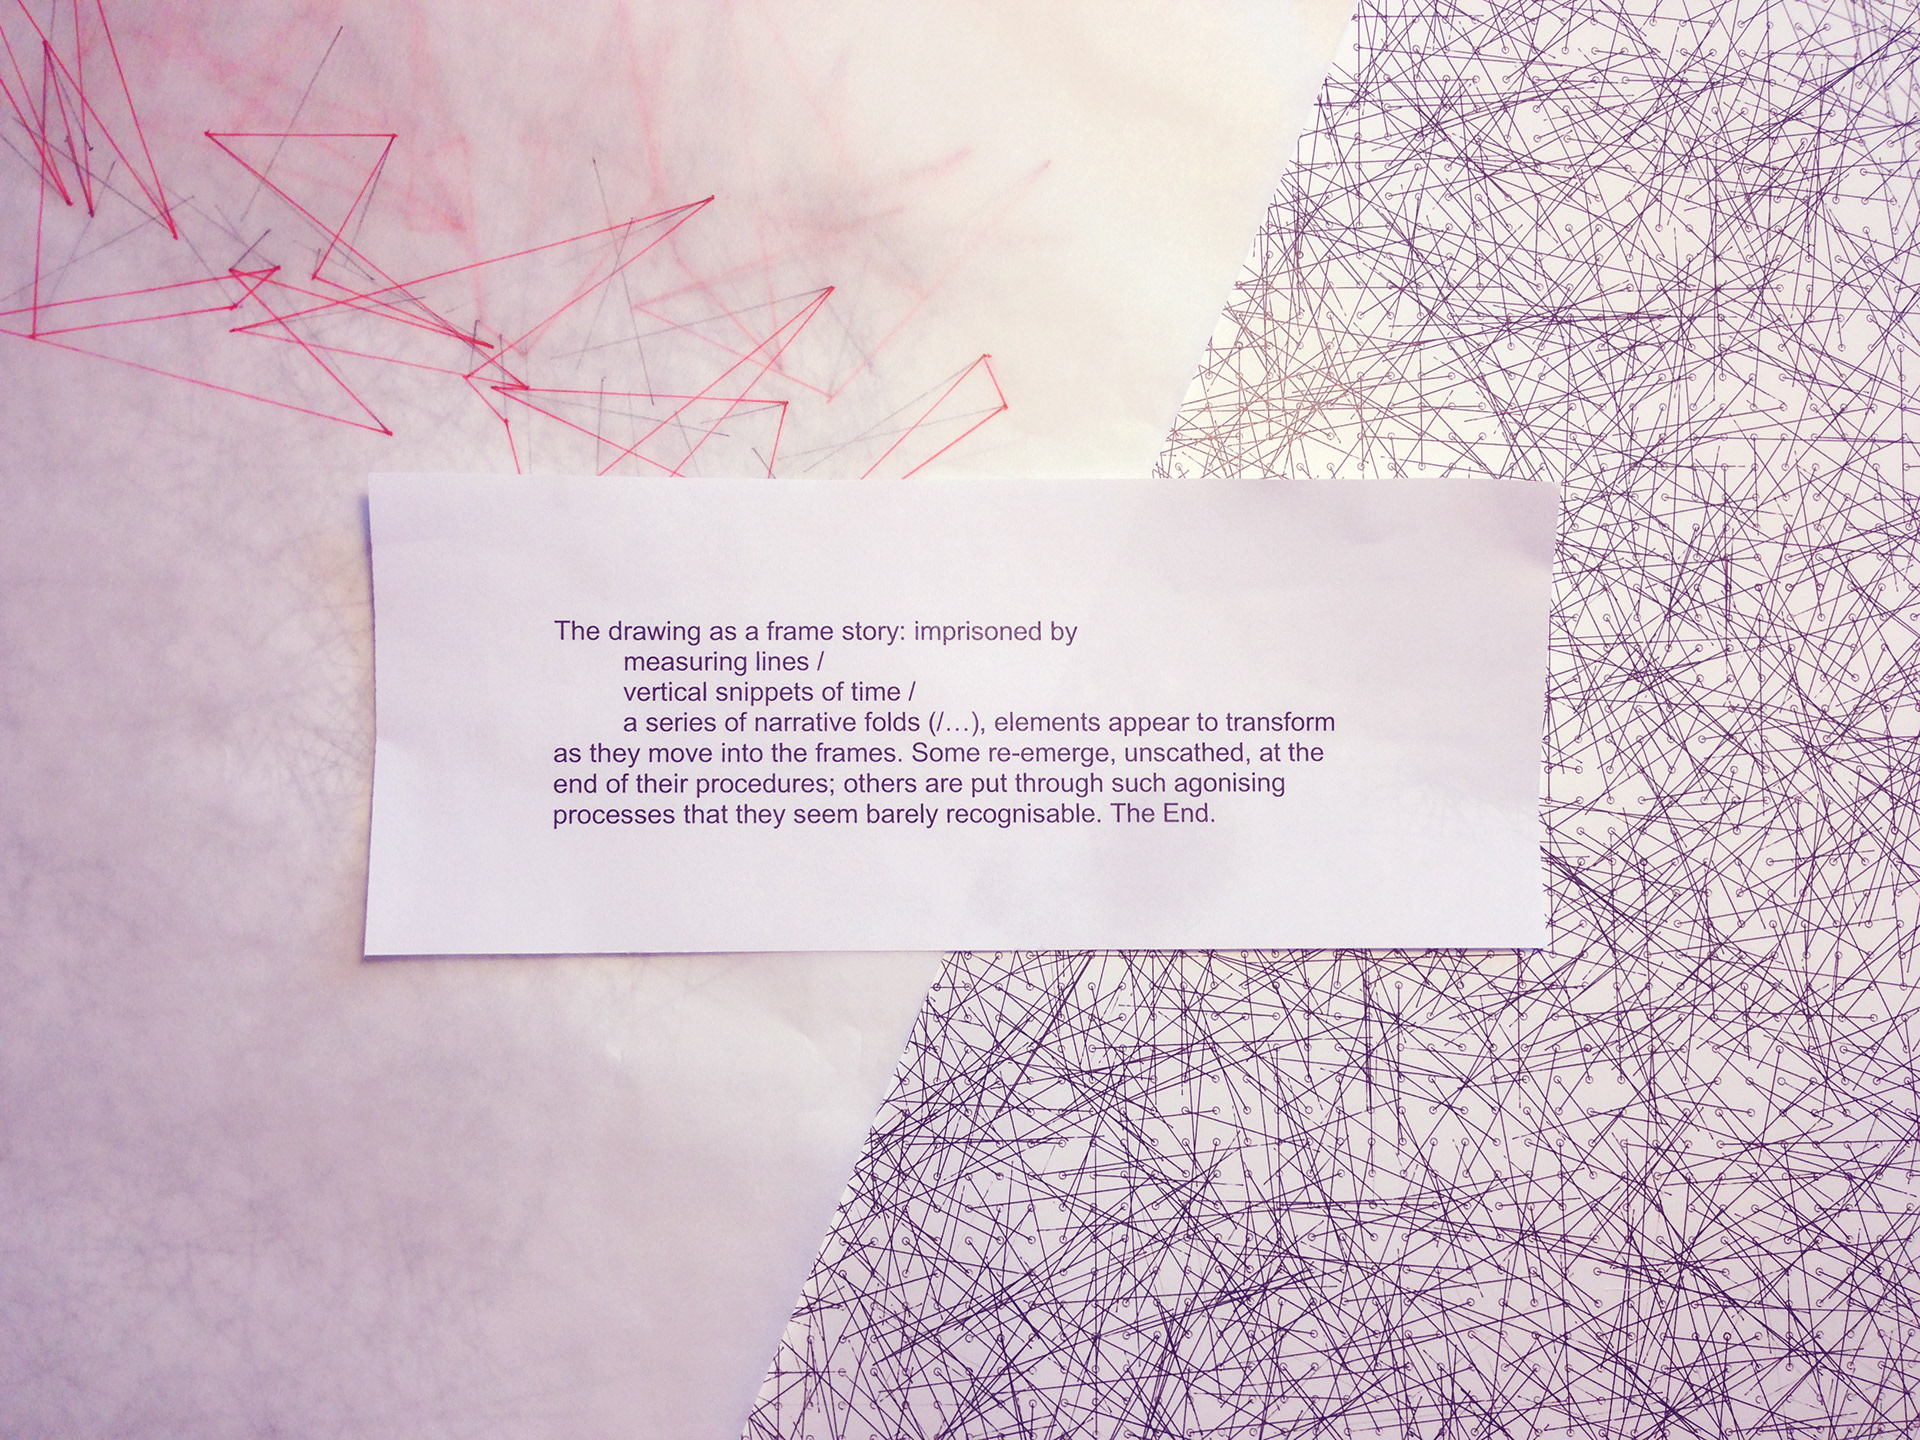 The drawing as a frame story: imprisoned by
measuring lines /
vertical snippets of time /
a series of narrative folds (/…), elements appear to transform
as they move into the frames. Some re-emerge, unscathed, at the
end of their procedures; others are put through such agonising
processes that they seem barely recognisable. The End.